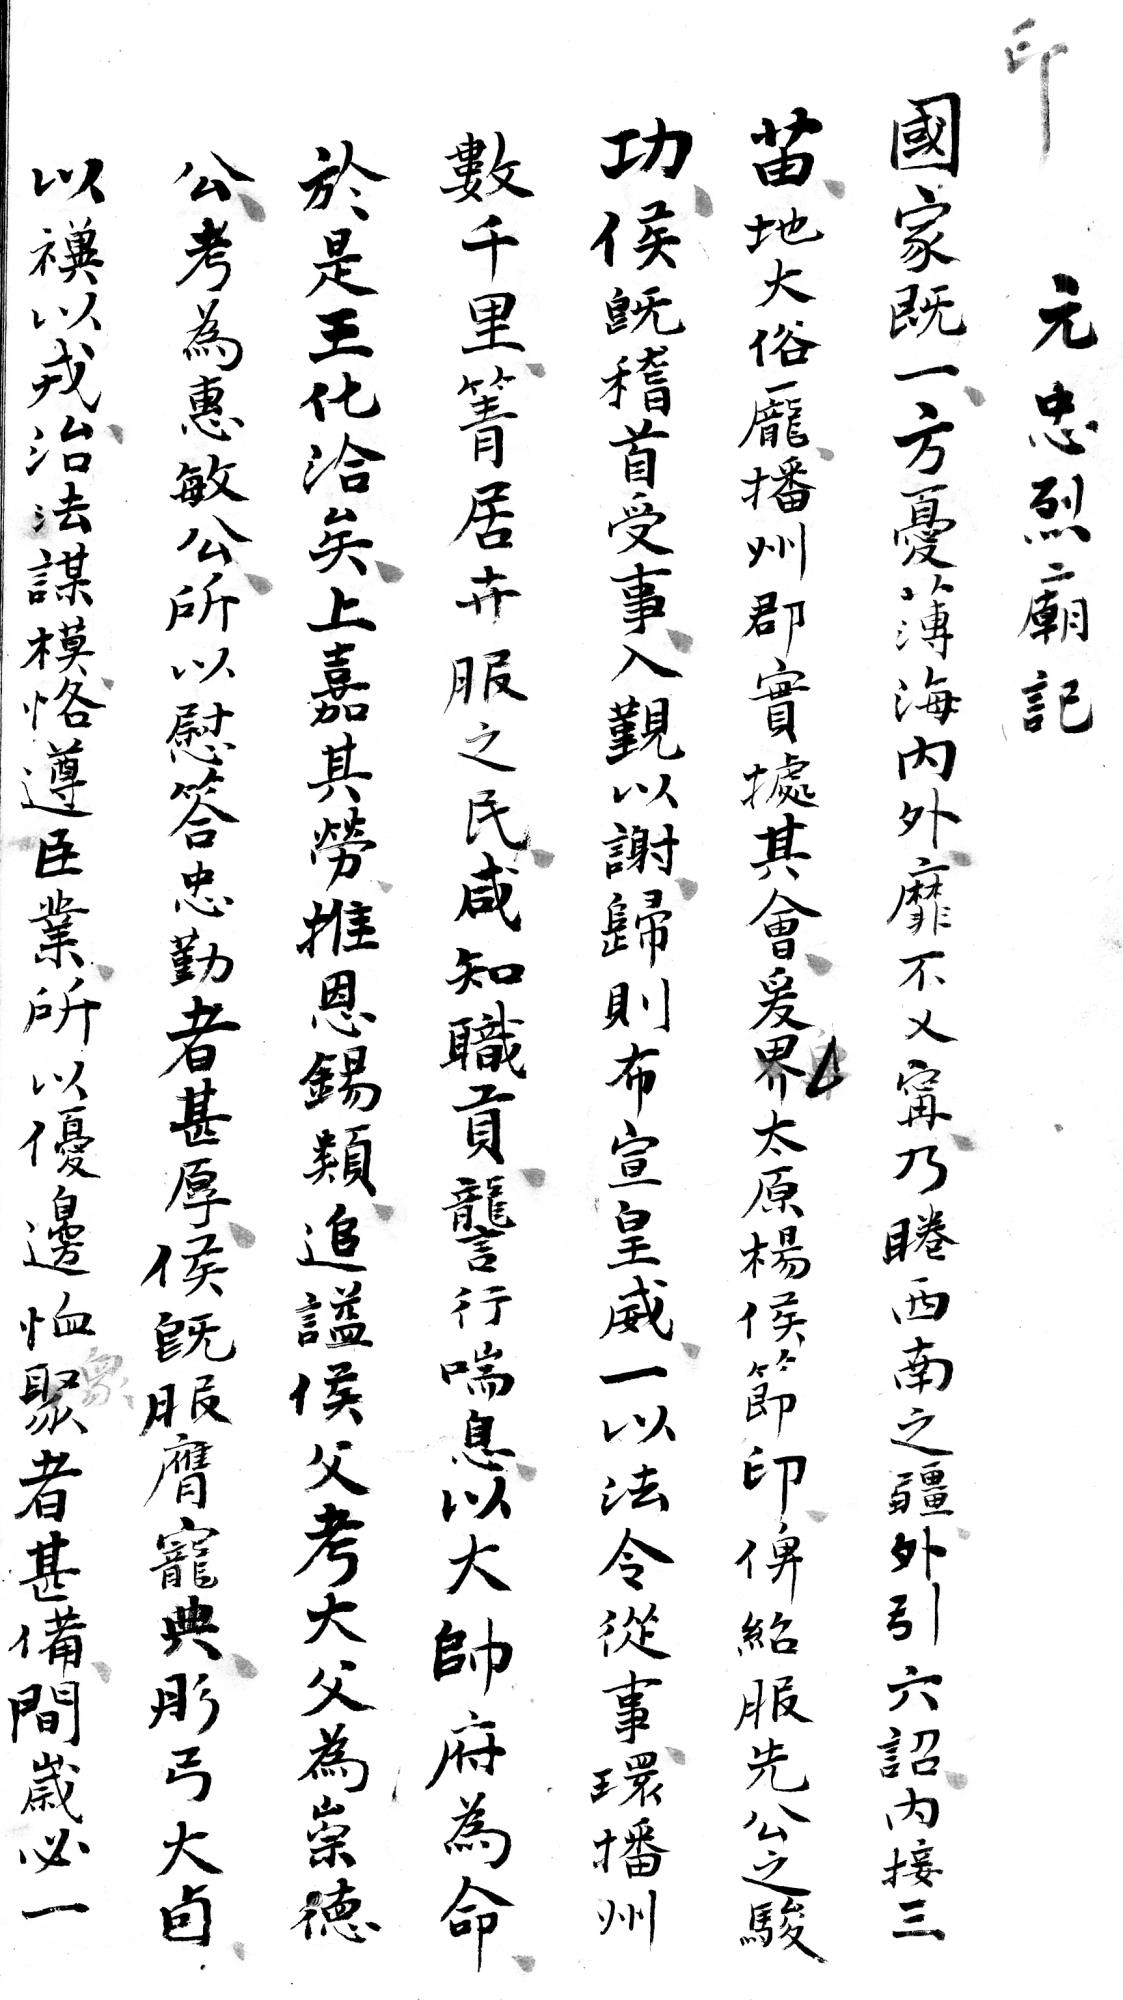 印
元忠烈廟記
國家既一方憂薄海内外靡不乂甯乃睠西南之疆外引六詔内接三
苗地大俗龐播州郡實㩀其會爰界太原楊侯節印俾紹服先公之駿
功侯既稽首受事入覲以謝歸則布宣皇威一以法令從事環播州
數千里箐居卉服之民咸知職貢讋行喘息以大帥府為命
於是王化洽矣上嘉其勞推恩錫類追謚侯父考大父為崇德
公考為惠敏公所以慰答忠勤者甚厚侯既服膺寵典彤弓大卣
以禩以戎治法謀模恪遵臣業所以優邊恤聚者甚備間歲必一